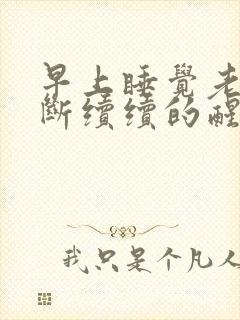 早上睡覺老
斷續續的醒
我只是个凡人